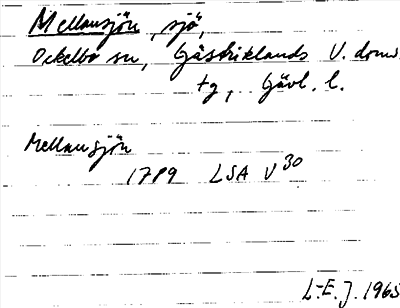 Mellansjön, sjö,
Ockelbo sn, Gästriklands V. doms.
tg, Gävl. l.
Mellansjön
1789 LSA V 30
L-E. J. 1965